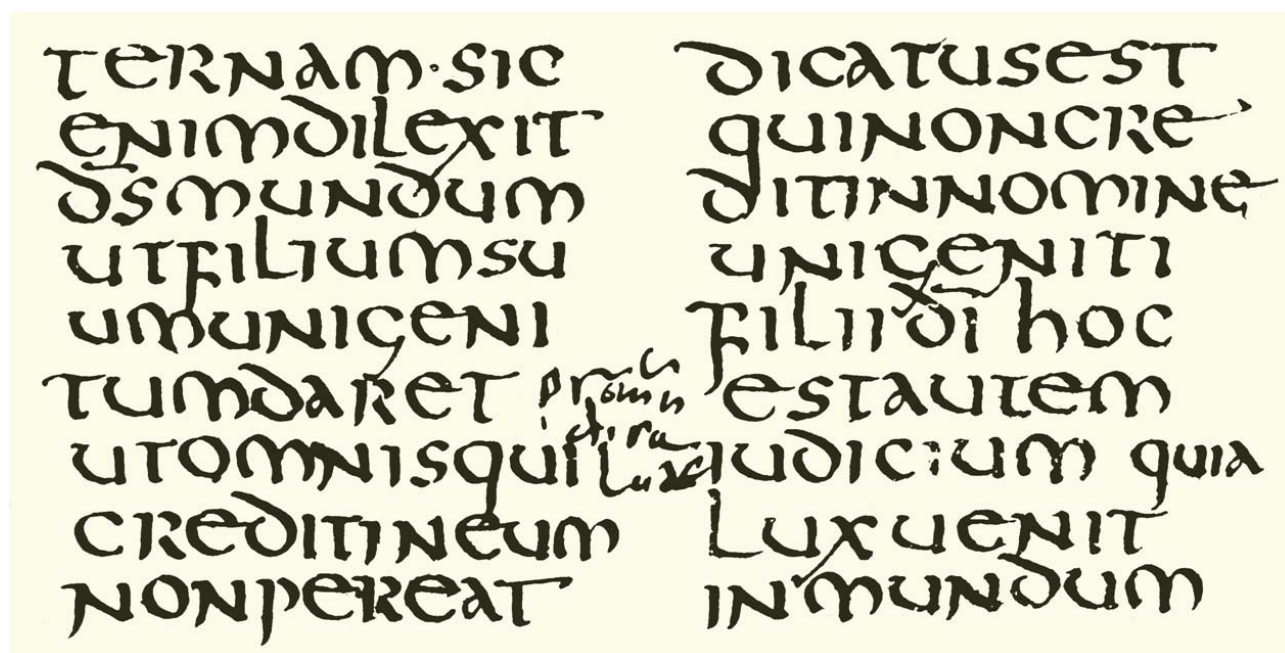 TERNAM·SIC
ENIMDILEXIT
DSMUNDUM
UTFILIUMSU
UMUNIGENI
TUMDARET
UTOMNISQUI
CREDITINEUM
NONPEREAT
DICATUSEST
QUINONCRE
DITINNOMINE
UNIGENITI
FILIIDI HOC
ESTAUTEM
IUDICIUM QUIA
LUXUENIT
INMUNDUM